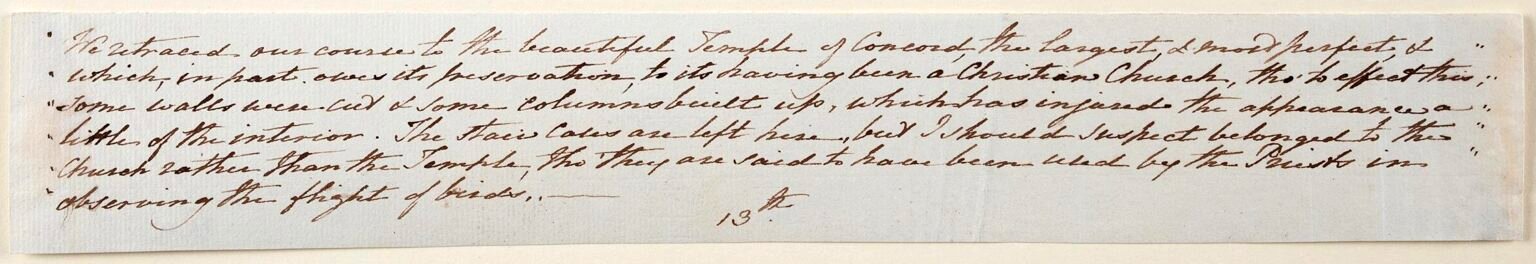 We retraced our course to the beautiful Temple of Concord, the largest, & most perfect, &
which, in part owes its preservation, to its having been a Christian Church, tho' to effect this,
some walls were cut & some columns built up, which has injured the appearance a
little of the interior. The stair cases are left here, but I should suspect belonged to the
Church rather than the Temple, tho' they are said to have been used by the Priests in
observing the flight of birds. —
13th